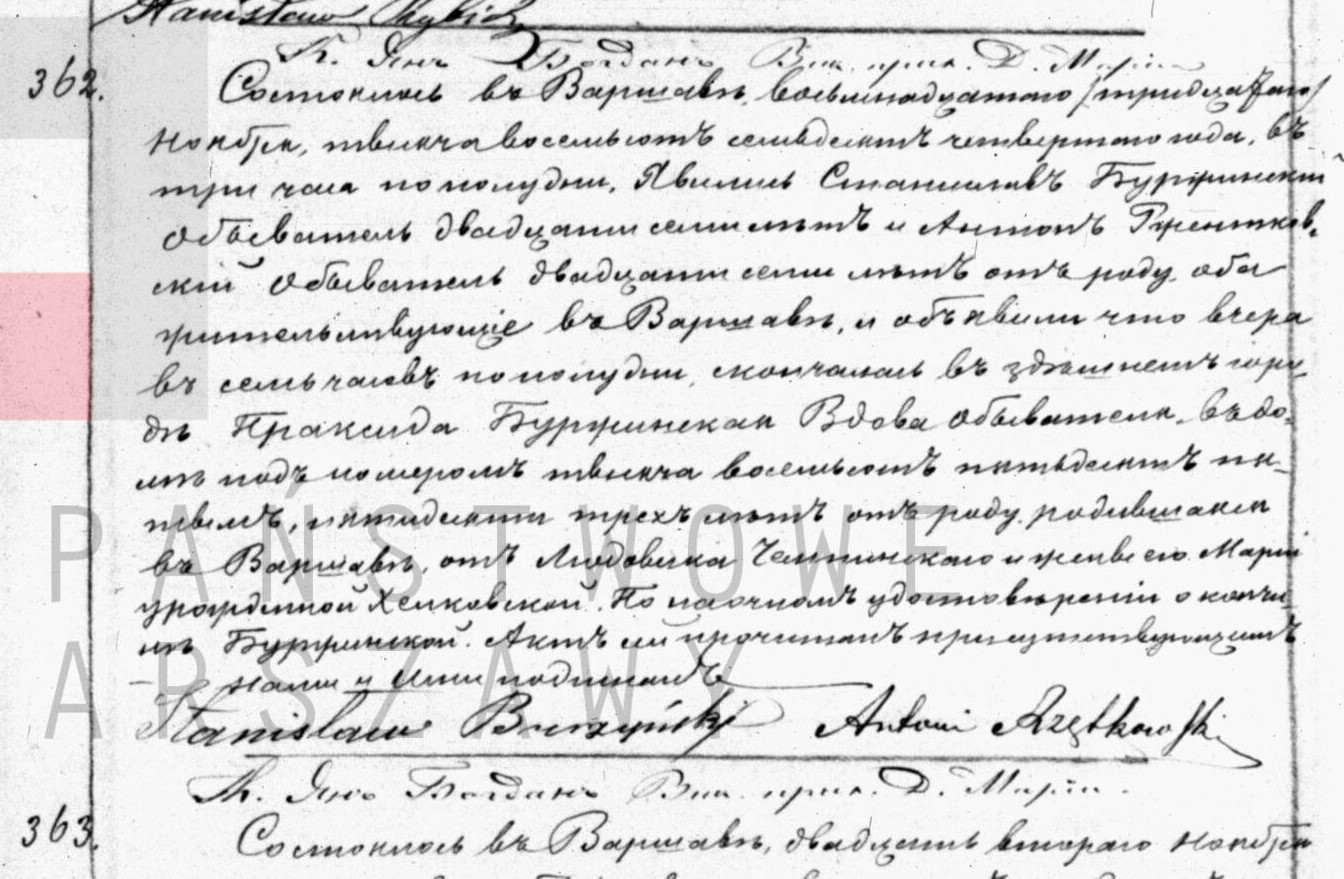 Stanisław Rybicki
К. Янъ Богданъ Вик. прих. Д. Маріи
362.
Состоялось въ Варшавѣ, восьмнадцатаго /тридцатаго/
Ноября, тысяча восемьсотъ семьдесятъ четвертаго года, въ
три часа по полудни. Явились Станиславъ Буржинскій
обыватель двадцати семи лѣтъ и Антонъ Ржентков-
скій обыватель двадцати семи лѣтъ отъ роду, оба
жительствующіе въ Варшавѣ, и объявили что вчера
въ семь часовъ по полудни, скончалась въ здѣшнемъ горо-
дѣ Праксида Буржинская Вдова обывателя, въ до-
мѣ подъ номеромъ тысяча восемьсотъ пятьдесятъ пя-
тымъ, пятидесяти трехъ лѣтъ отъ роду, родившаяся
въ Варшавѣ, отъ Людовика и жены его Маріи
урожденной Хелховской. По наочномъ удостовѣреніи о кончи-
нѣ Буржинской. Актъ сей прочитанъ присутствующимъ
Нами и Ими подписанъ
PAŃSTWOWE
ARSZAWY
Stanisław Burzyński Antoni Rzętkowski
К. Янъ Богданъ Вик. прих. Д. Маріи.
363.
Состоялось въ Варшавѣ, двадцать втораго Ноября